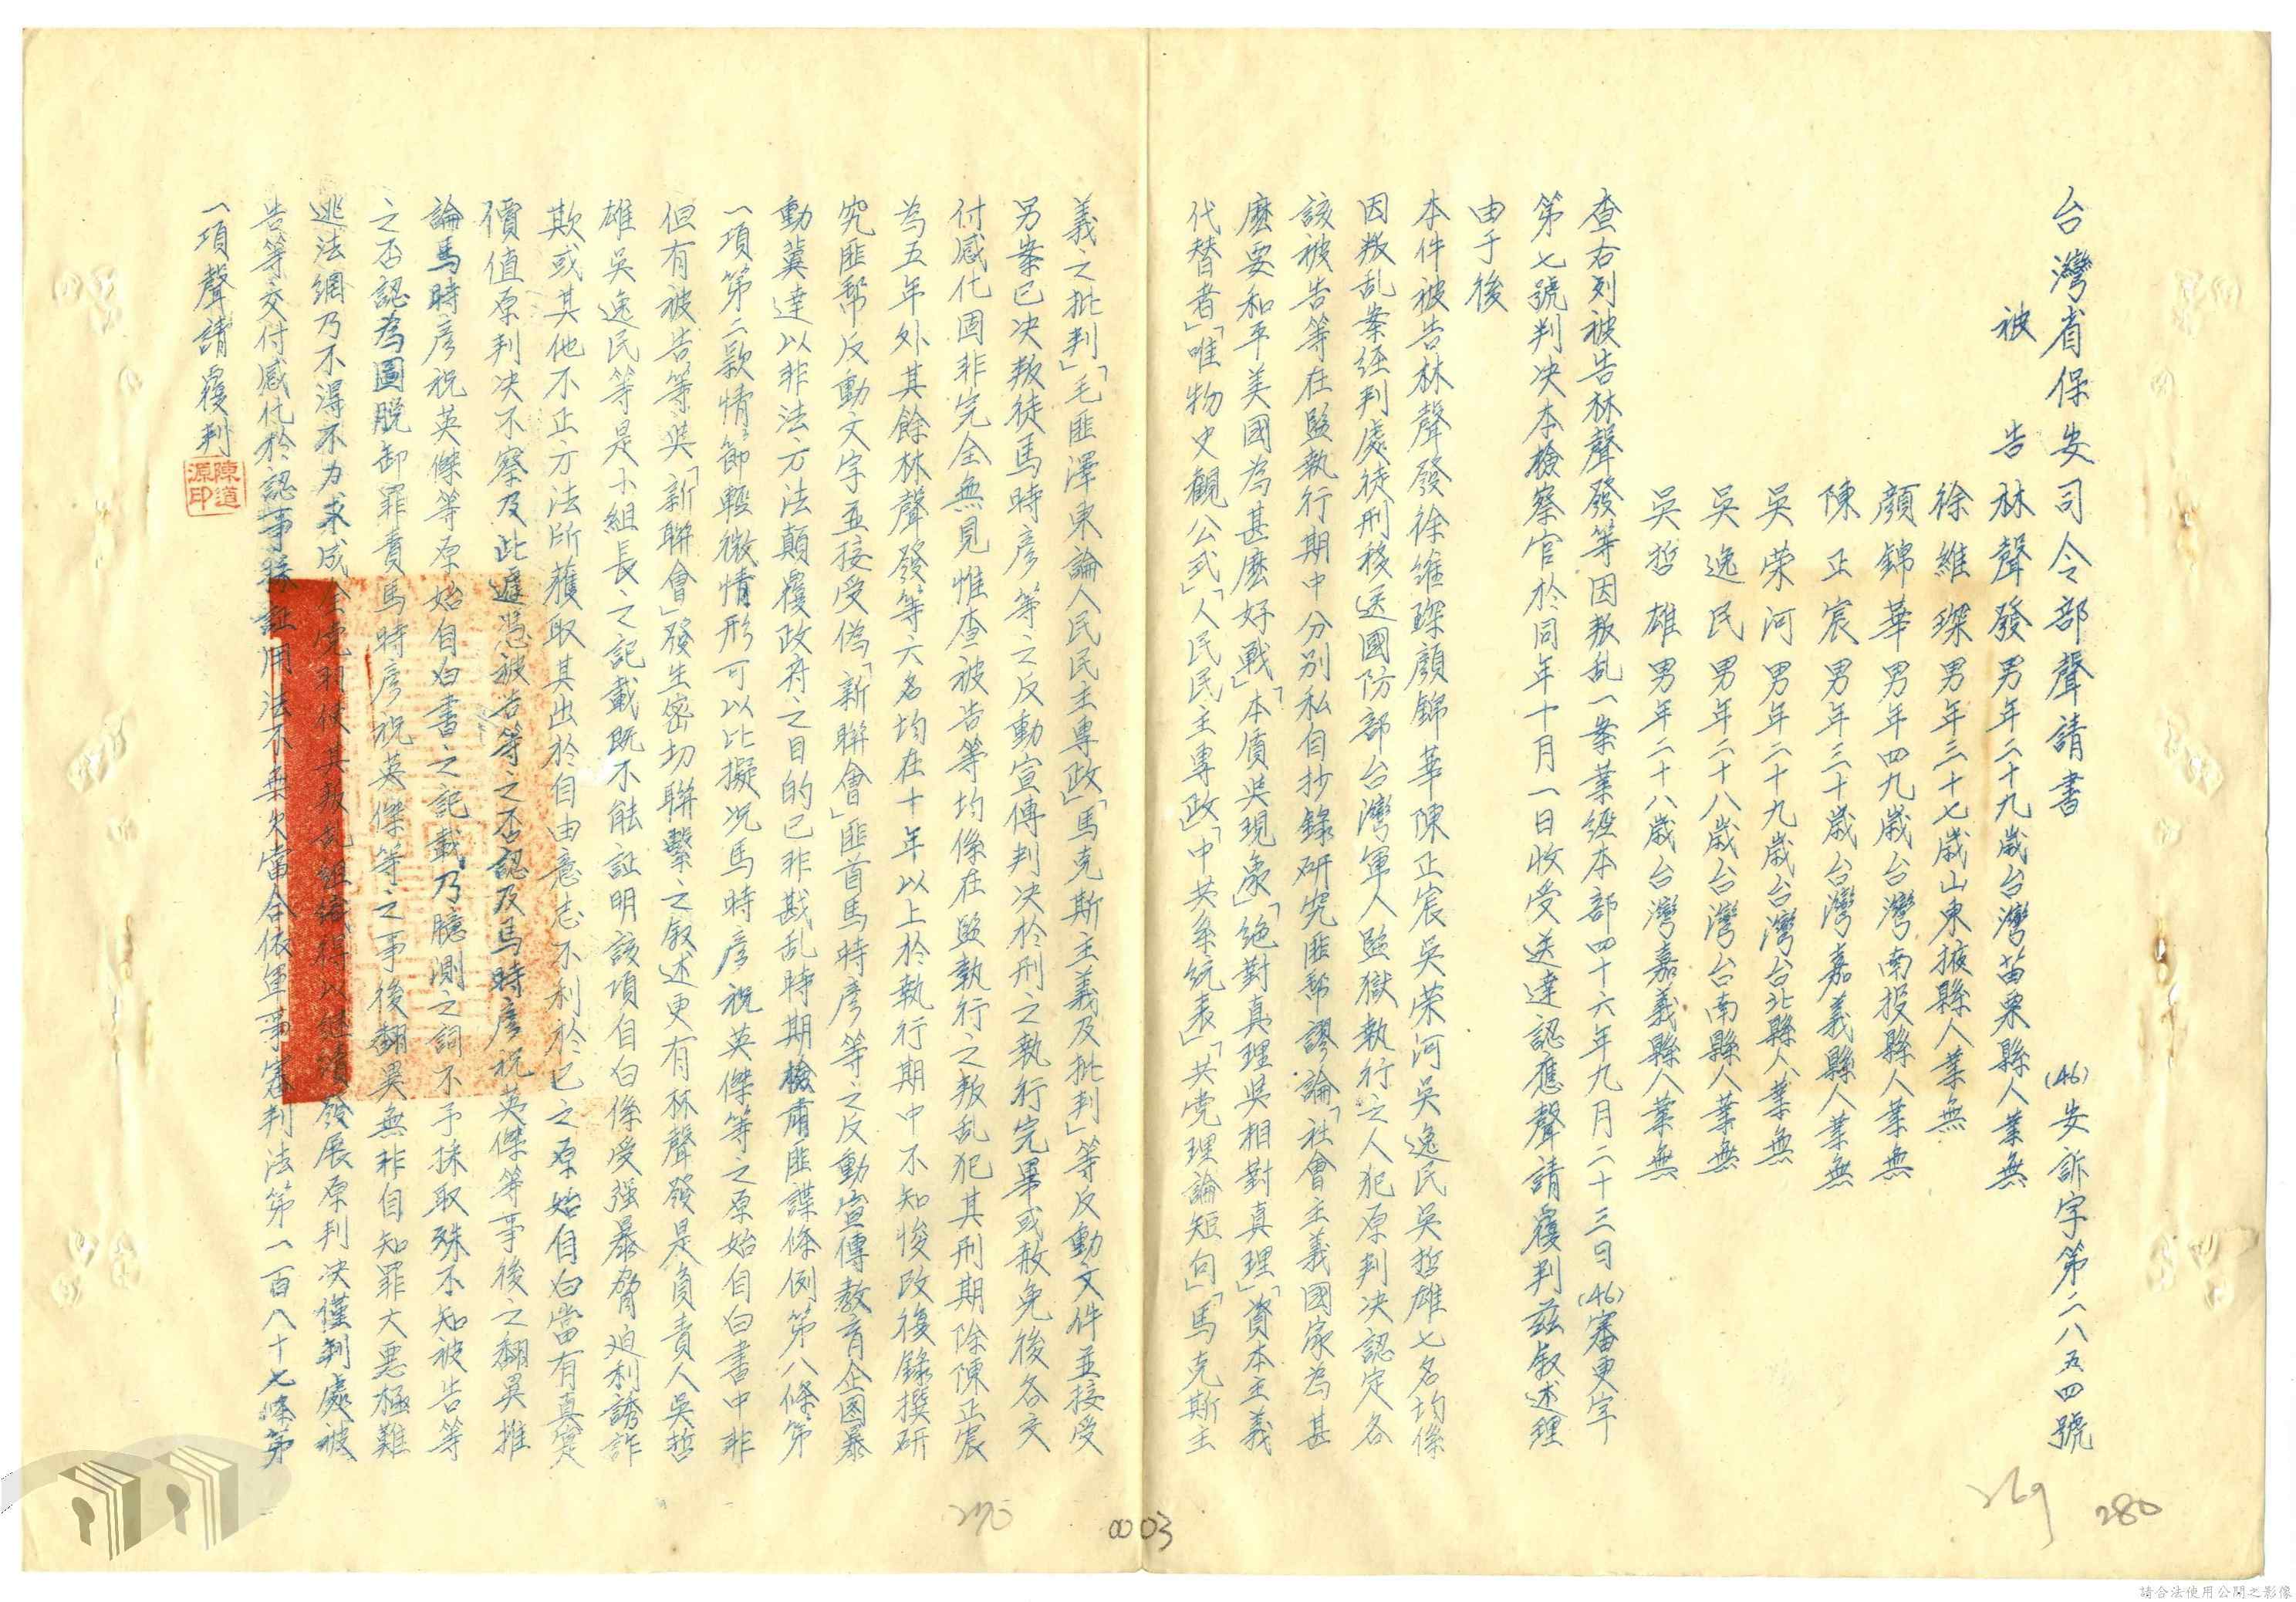 台灣省保安司令部聲請書
(46)安訴字第二八五四號
被告 林聲發 男年二十九歲台灣苗栗縣人業無
徐維琛 男年三十七歲山東掖縣人業無
顏錦華 男年四九歲台灣南投縣人業無
陳正宸 男年三十歲台灣嘉義縣人業無
吳荣河 男年二十九歲台灣台北縣人業無
吳逸民 男年二十八歲台灣台南縣人業無
吳哲雄 男年二十八歲台灣嘉義縣人業無
查右列被告林聲發等因叛乱一案業經本部四十六年九月二十三日(46)審更字
第七號判决本檢察官於同年十月一日收受送達認應聲請覆判兹叙述理
由于後
本件被告林聲發徐維琛顏錦華陳正宸吳荣河吳逸民吳哲雄七名均係
因叛乱案經判處徒刑移送國防部台灣軍人監獄執行之人犯原判决認定各
該被告等在監執行期中分别私自抄錄研究匪幇謬論「社會主義國家為甚
麽要和平美國為甚麽好戰」「本質與現象」「绝對真理與相對真理」「資本主義
代替者」「唯物史觀公式」「人民民主專政」「中共系統表」「共党理論短句」「馬克斯主
義之批判」「毛匪澤東論人民民主專政」「馬克斯主義及批判」等反動文件並接受
另案已决叛徒馬時彥等之反動宣傳判决於刑之執行完畢或赦免後各交
付感化固非完全無見惟查被告等均係在監執行之叛乱犯其刑期除陳正宸
為五年外其餘林聲發等六名均在十年以上於執行期中不知悛改復錄撰研
究匪幇反動文字並接受偽「新聯會」匪首馬時彥等之反動宣傳教育企图暴
動冀達以非法方法顛覆政府之目的已非戡乱時期檢肅匪諜條例第八條第
一項第二款情節輕微情形可以比擬况馬時彥祝英傑等之原始自白書中非
但有被告等與「新聯會」發生密切聯繫之叙述更有林聲發是負責人吳哲
雄吳逸民等是小組長之記載既不能証明該項自白係受强暴脅迫利誘詐
欺或其他不正方法所獲取其出於自由意志不利於己之原始自白當有真實
價值原判决不察及此遽憑被告等之否認及馬時彥祝英傑等事後之翻異推
論馬時彥祝英傑等原始自白書之記載乃臆測之詞不予採取殊不知被告等
之否認為圖脱卸罪責馬時彥祝英傑等之事後翻異無非自知罪大惡極難
逃法網乃不得不力求成全党羽使其叛乱組織得以継續發展原判决僅判處被
告等交付感化於認事採証用法不無欠當合依軍事審判法第一百八十七條第
一項聲請覆判
陳道源印
269
280
270
0003
請合法使用公開之影像